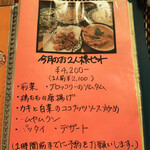 今月のお2人様セット
¥4,200-
(1人前¥2,100)
・前菜・ブロッコリーのソムタム
・鶏ももの唐揚げ
・カキと白菜のココナッツソース炒め
・ムヤムクン
・パッタイ ・デザート
(1時間前までにご予約をお願いします。)